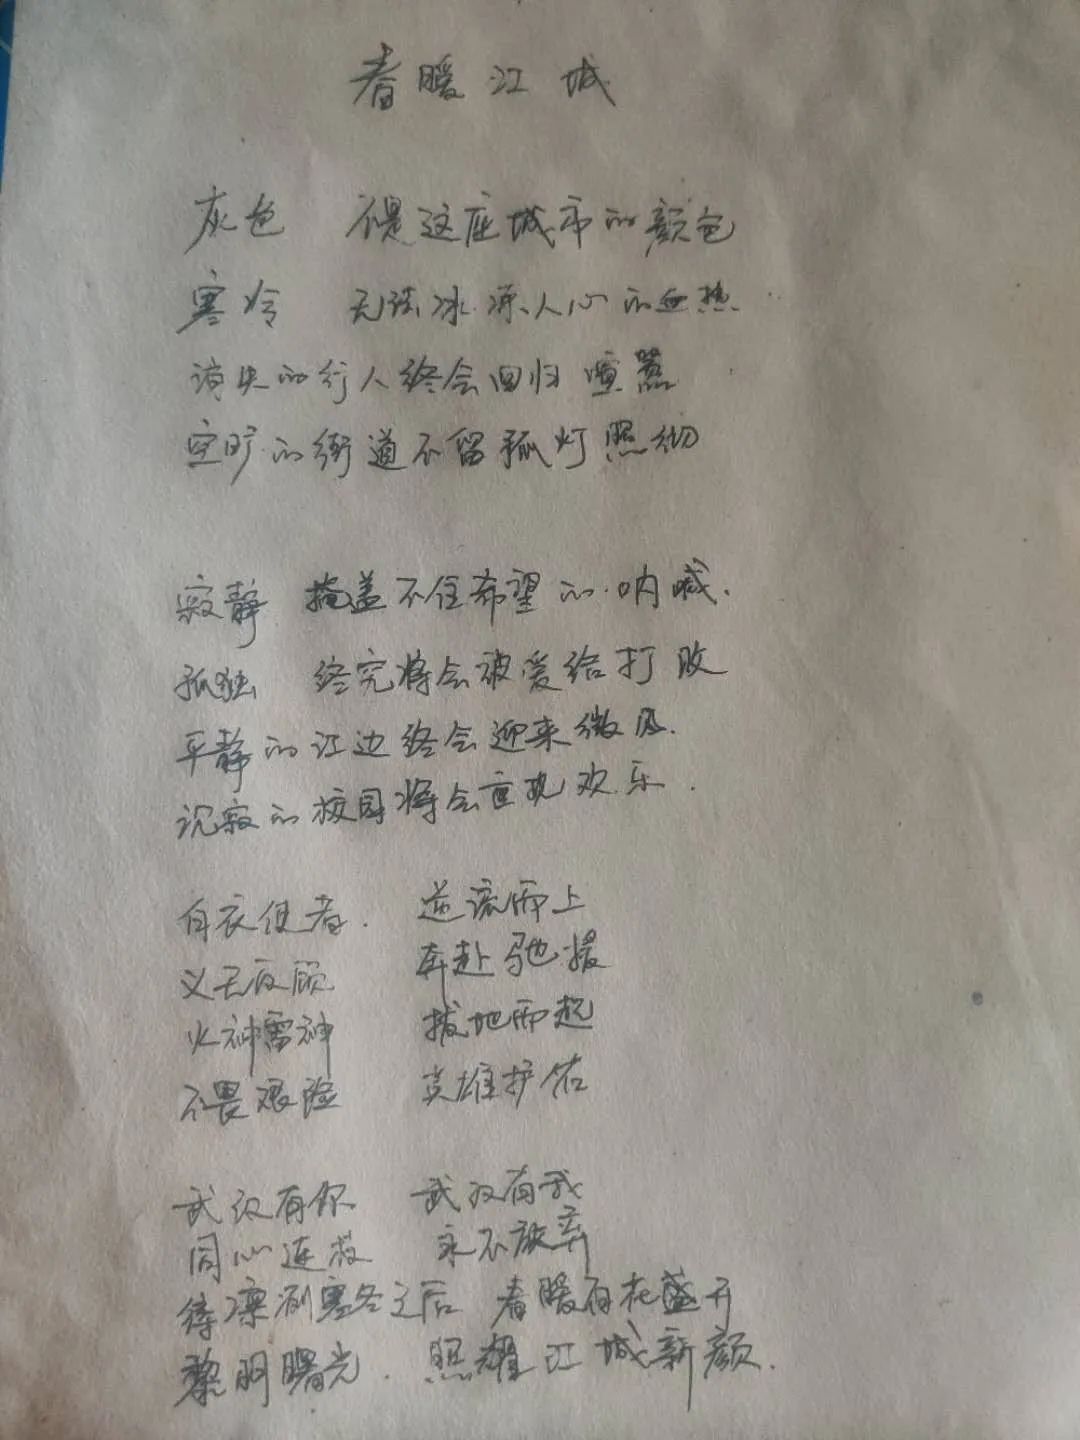 春暖江城
灰色 不是这座城市的颜色
寒冷 无法冰冻人心的血热
消失的行人终会回归喧嚣
空旷的街道不留孤灯照彻
寂静 掩盖不住希望的呐喊.
孤独 终究将会被爱给打败
平静的江边终会迎来微风.
沉寂的校园将会重现欢乐.
白衣使者. 逆流而上
义无反顾 奔赴驰援
火神雷神 拔地而起
不畏艰险 英雄护佑
武汉有你 武汉有我
同心连 永不放弃
待凛冽寒冬之后 春暖百花盛开
黎明曙光. 照耀江城新颜.